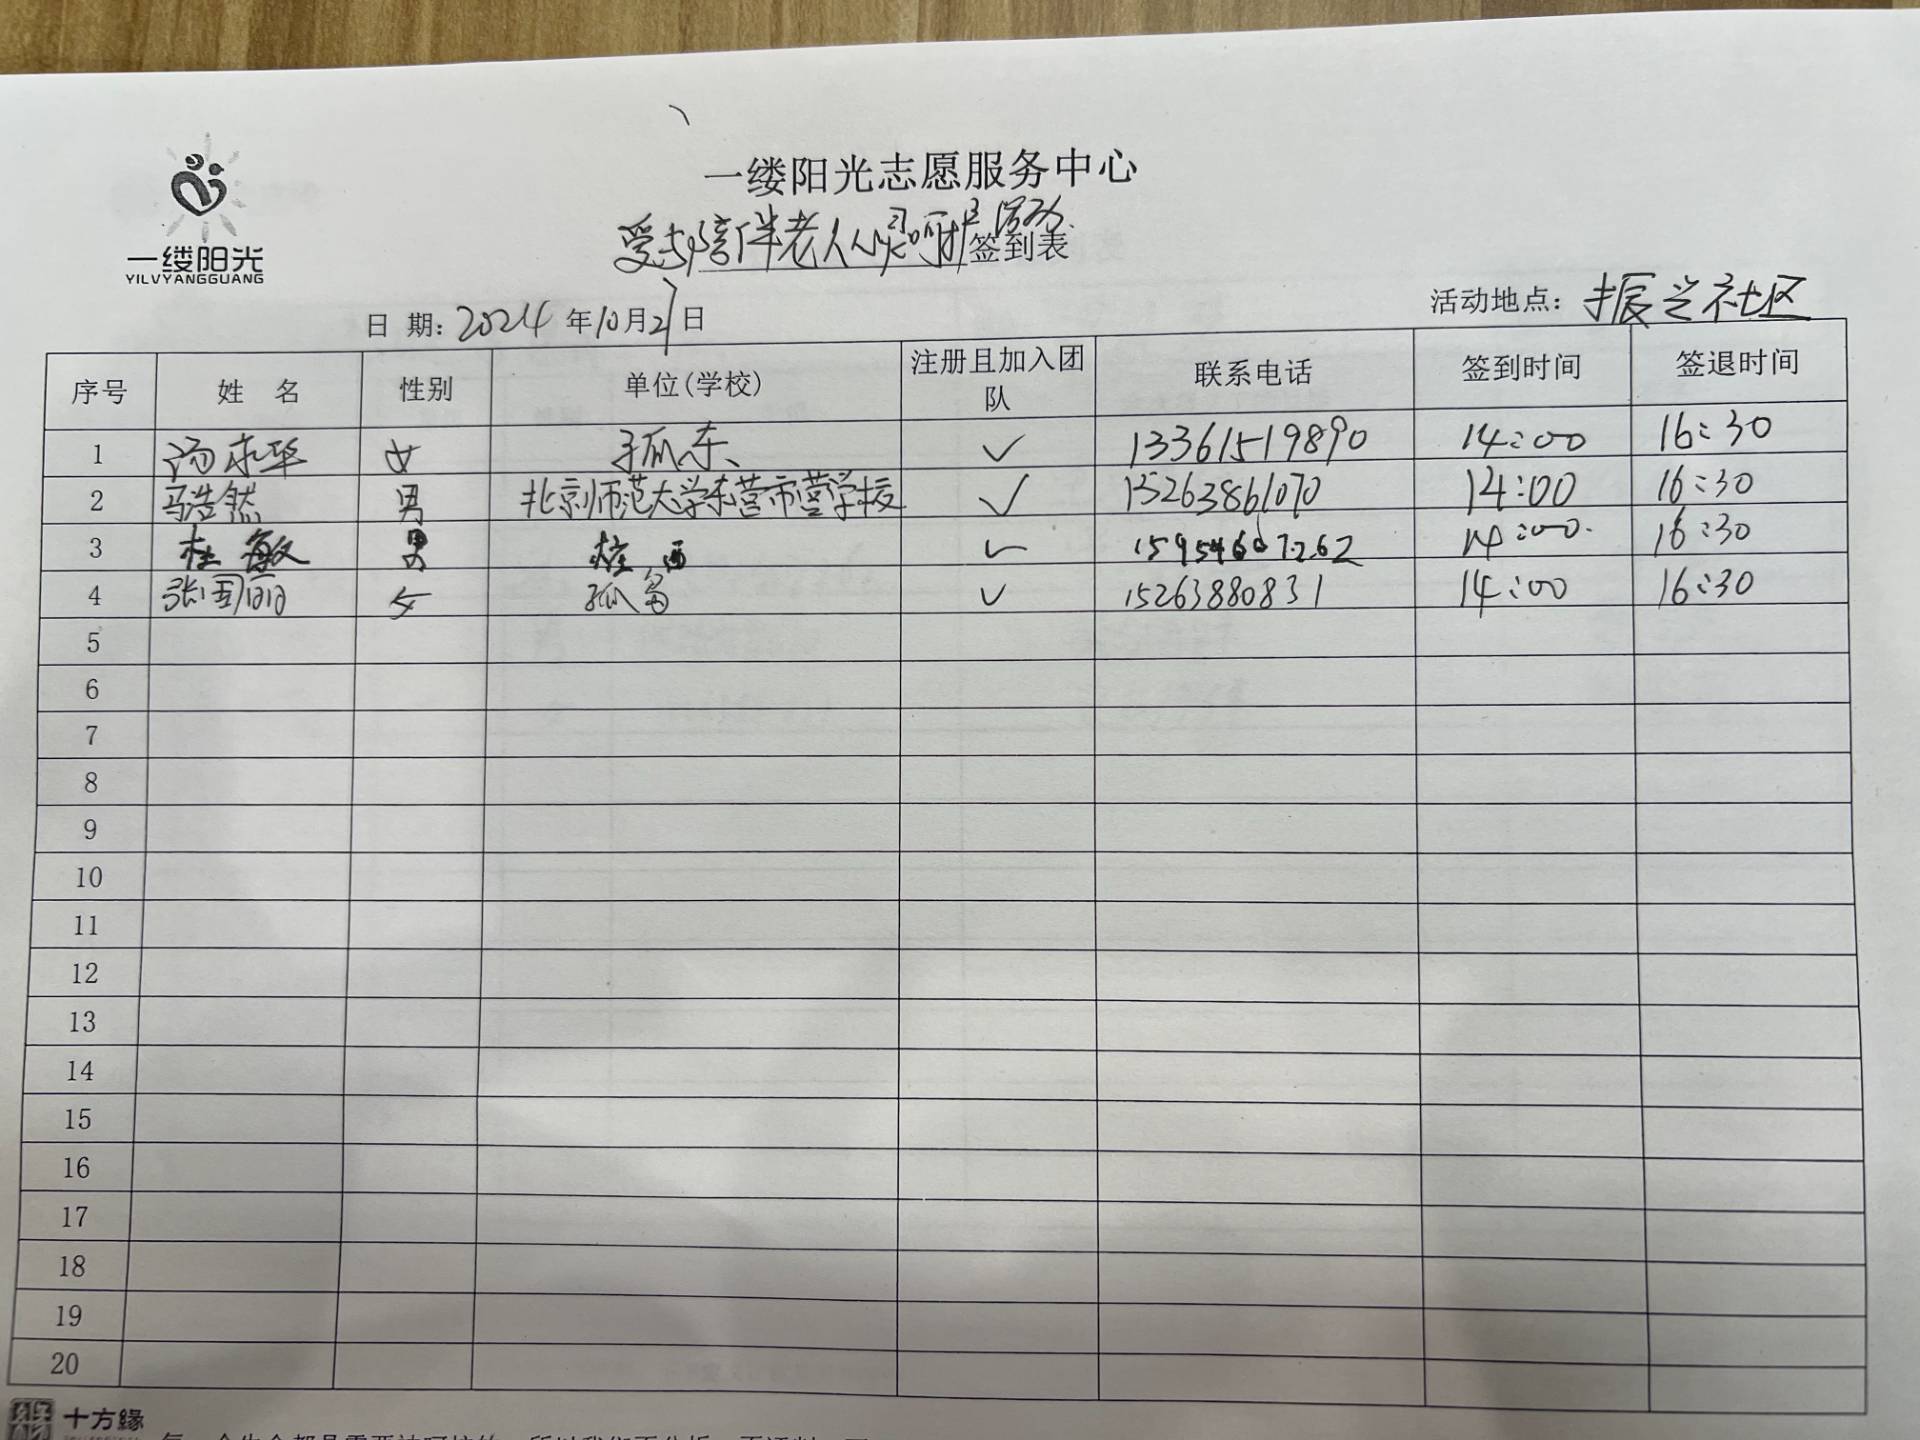 一缕阳光
YILVYANGGUANG
一缕阳光志愿服务中心
爱与陪伴老人心灵呵护活动 签到表
日 期: 2024 年 10 月 27 日
活动地点: 振兴社区
序号 姓 名 性别 单位(学校) 注册且加入团队 联系电话 签到时间 签退时间
1 汤永华 女 孤东 ✓ 13361519890 14:00 16:30
2 马浩然 男 北京师范大学东营市营学校 ✓ 15263861070 14:00 16:30
3 杜敏 男 ✓ 15954607262 14:00 16:30
4 张国丽 女 孤岛 ✓ 15263880831 14:00 16:30
5
6
7
8
9
10
11
12
13
14
15
16
17
18
19
20
十方缘